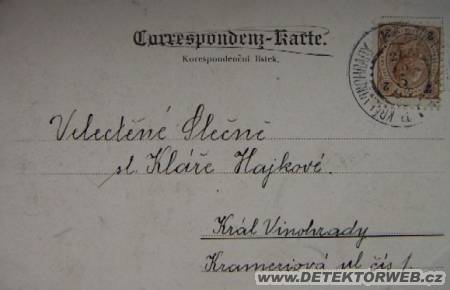 Correspondenz-Karte.
Korespondenční lístek.
Velectěné Slečně
sl. Kláře Hajkové.
Král Vinohrady
Krameriová ul čís 1.
2
2
WWW.DETEKTORWEB.CZ